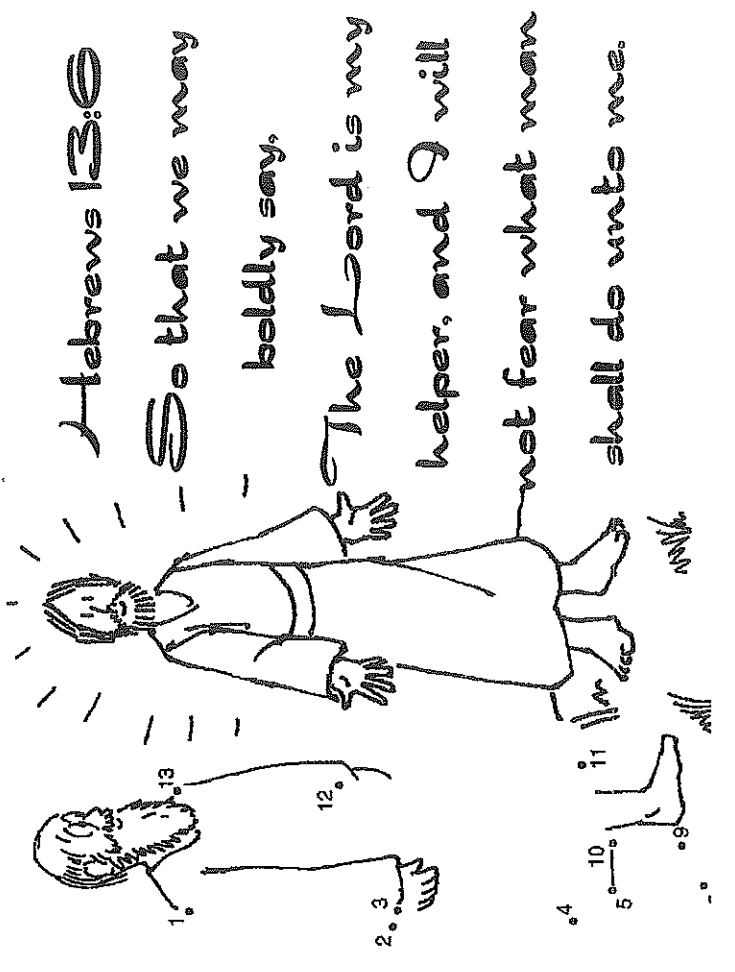 Hebrews 13:6
So that we may
boldly say,
The Lord is my
helper, and I will
not fear what man
shall do unto me.
13
1
12
3
2
11
10
9
5
4